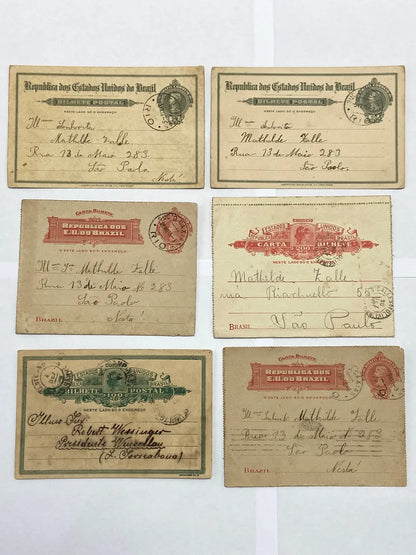 Republica dos Estados Unidos do Brazil
BILHETE POSTAL
NESTE LADO SÓ O ENDEREÇO
Mathilde Zalle
Rua 13 de Maio 283
São Paulo
Nesta
Republica dos Estados Unidos do Brazil
BILHETE POSTAL
NESTE LADO SÓ O ENDEREÇO
Mathilde Zalle
Rua 13 de Maio 283
São Paulo.
CARTA BILHETE
REPUBLICA DOS
E.U. DO BRAZIL
NESTE LADO SÓ O ENDEREÇO
Mathilde Zalle
Rua 13 de Maio No 283
São Paulo
Nesta
BRAZIL
CORREIO
ESTADOS UNIDOS
CARTA 200 BILHETE
Mathilde Zalle
rua Riachuelo 55
São Paulo
BRASIL
BILHETE 100 POSTAL
NESTE LADO SÓ O ENDEREÇO
Illmo Snr.
Robert Wessinger
Presidente Wenceslau
(E. Sorocabana)
CARTA BILHETE
REPUBLICA DOS
E.U. DO BRAZIL
NESTE LADO SÓ O ENDEREÇO
Mathilde Zalle
Rua 13 de Maio No 283
São Paulo
Nesta
BRAZIL